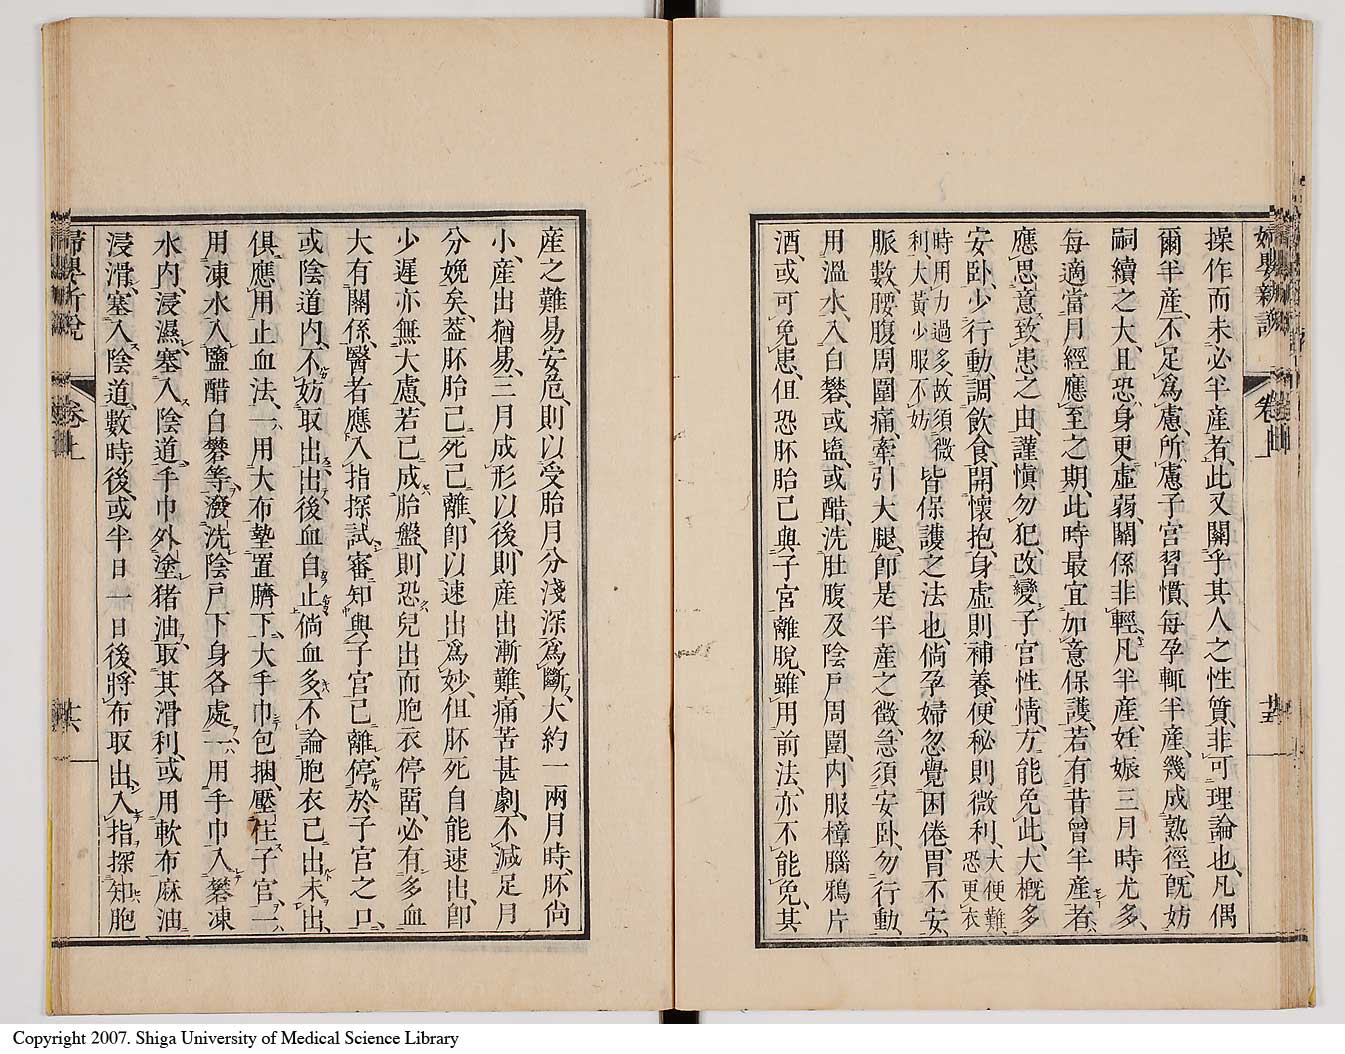 婦嬰新說
卷上
操作而未必半産者、此又關乎其人之性質、非可理論也、凡偶
爾半産、不足爲慮、所慮子宮習慣、每孕輒半産、幾成熟徑、既妨
嗣續之大、且恐身更虛弱、關係非輕、凡半産、妊娠三月時尤多、
每適當月經應至之期、此時最宜加意保護、若有昔曾半産者、
應思意致患之由、謹愼勿犯、改變子宮性情、方能免此、大槪多
安卧、少行動、調飲食、開懷抱、身虛則補養、便秘則微利、大便難、恐更衣
時用力過多、故須微利、大黃少服不妨皆保護之法也、倘孕婦忽覺困倦、胃不安、
脈數、腰腹周圍痛、牽引大腿、卽是半産之徵、急須安卧、勿行動、
用溫水、入白礬、或鹽、或醋、洗肚腹及陰戶周圍、內服樟腦鴉片
酒、或可免患、但恐胚胎已與子宮離脫、雖用前法、亦不能免、其
産之難易安危、則以受胎月分淺深爲斷、大約一兩月時、胚尚
小、産出猶易、三月成形以後、則産出漸難、痛苦甚劇、不減足月
分娩矣、蓋胚胎已死已離、卽以速出爲妙、但胚死自能速出、卽
少遲亦無大慮、若已成胎盤、則恐兒出而胞衣停畱、必有多血
大有關係、醫者應入指探試、審知與子宮已離、停於子宮之口、
或陰道內、不妨取出、出後血自止、倘血多、不論胞衣已出未出、
俱應用止血法、一用大布墊置臍下、大手巾包捆、壓住子宮、一
用凍水入鹽醋白礬等、潑洗陰戶下身各處、一用手巾入礬凍
水內、浸濕塞入陰道、手巾外塗猪油、取其滑利、或用軟布麻油
浸滑、塞入陰道、數時後、或半日一日後、將布取出、入指探知胞
婦嬰新說
卷上
十六
Copyright 2007. Shiga University of Medical Science Library